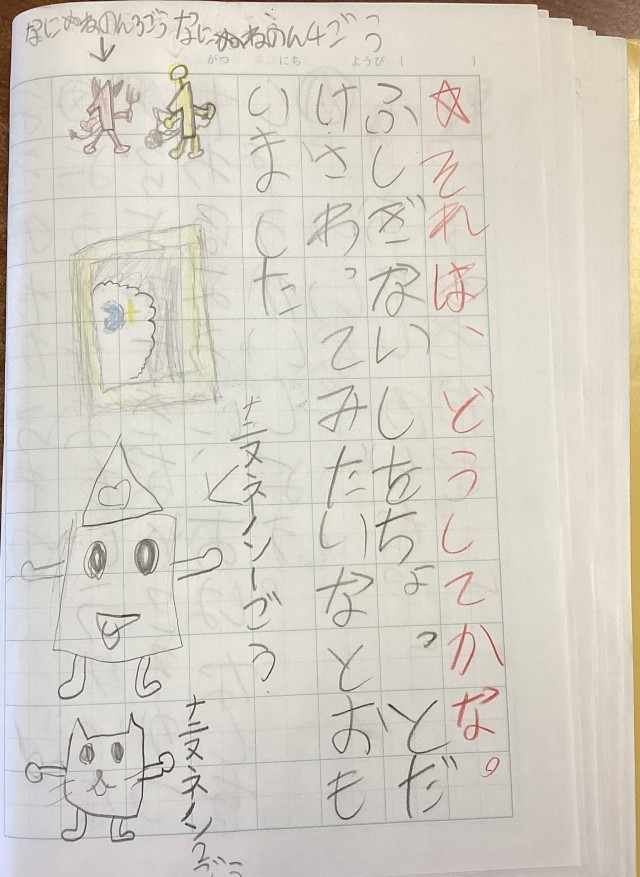 なにぬねのん3ごう
なにぬねのん4ごう
がつ にち ようび ( )
☆それは、どうしてかな。
ふしぎないしをちょっとだ
けさわってみたいなとおも
いました
ナニヌネノン1ごう
ナニヌネノン2ごう